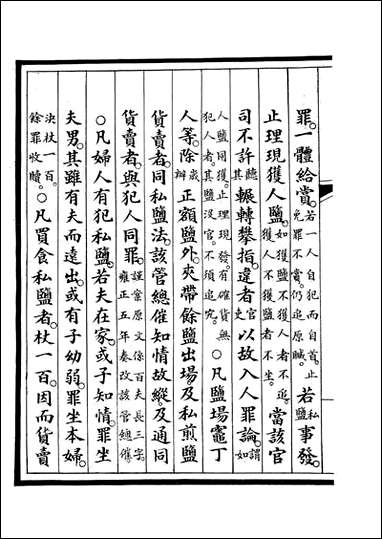 罪。一體給賞。若一人自犯而自首。止免罪不賞。仍追原贓。若私鹽事發。
止理現獲人鹽。如獲鹽不獲人者不追。獲人不獲鹽者不坐。當該官
司不許聽其輾轉攀指。違者官吏以故入人罪論。謂如
人鹽同獲。止理現發。有確貨無犯人者。其鹽沒官。不須追究。○凡鹽場竈丁
人等。除歲辦正額鹽外。夾帶餘鹽出場。及私煎鹽
貨賣者。同私鹽法。該管總催知情故縱。及通同
貨賣者。與犯人同罪。謹案原文係百夫長三字。雍正五年奏改該管總催。
○凡婦人有犯私鹽。若夫在家。或子知情。罪坐
夫男。其雖有夫而遠出。或有子幼弱。罪坐本婦。
決杖一百。餘罪收贖。○凡買食私鹽者。杖一百。因而貨賣